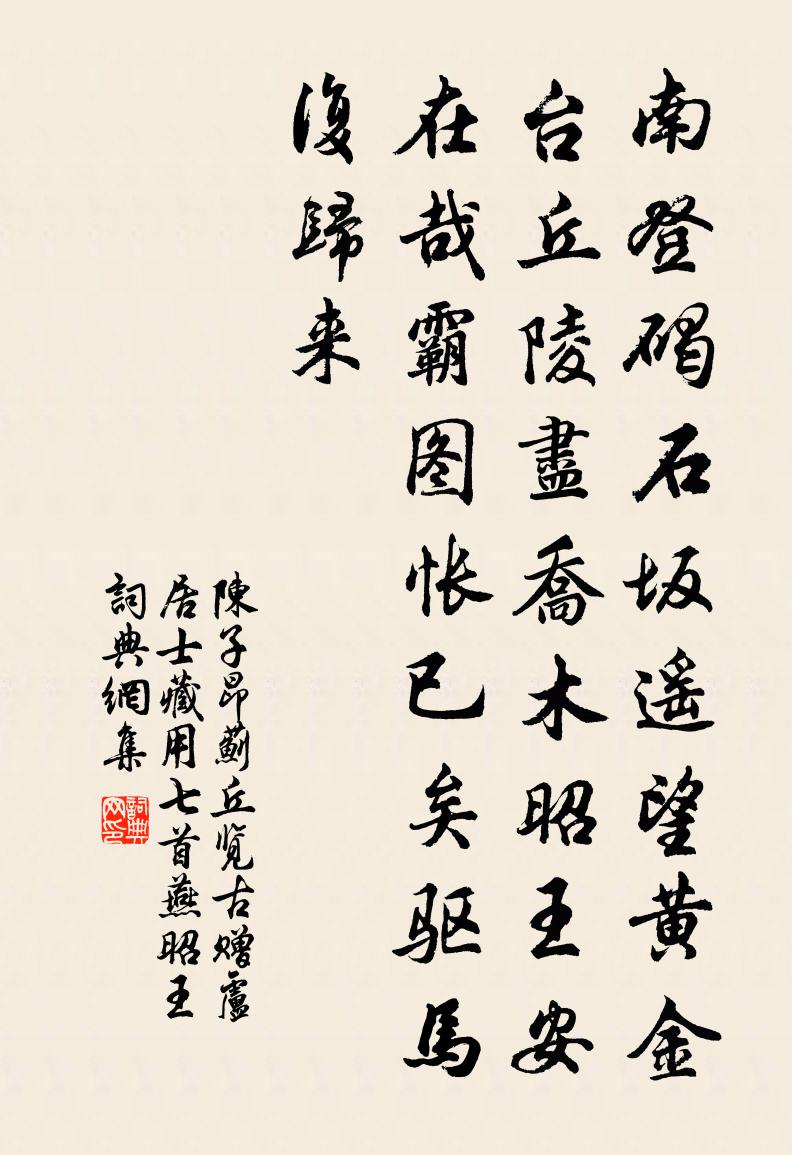 南登碣石坂遥望黄金
台丘陵盡喬木昭王安
在哉霸图怅已矣驱馬
復歸来
陳子昂薊丘览古赠盧
居士藏用七首燕昭王
詞典網集
詞典网印